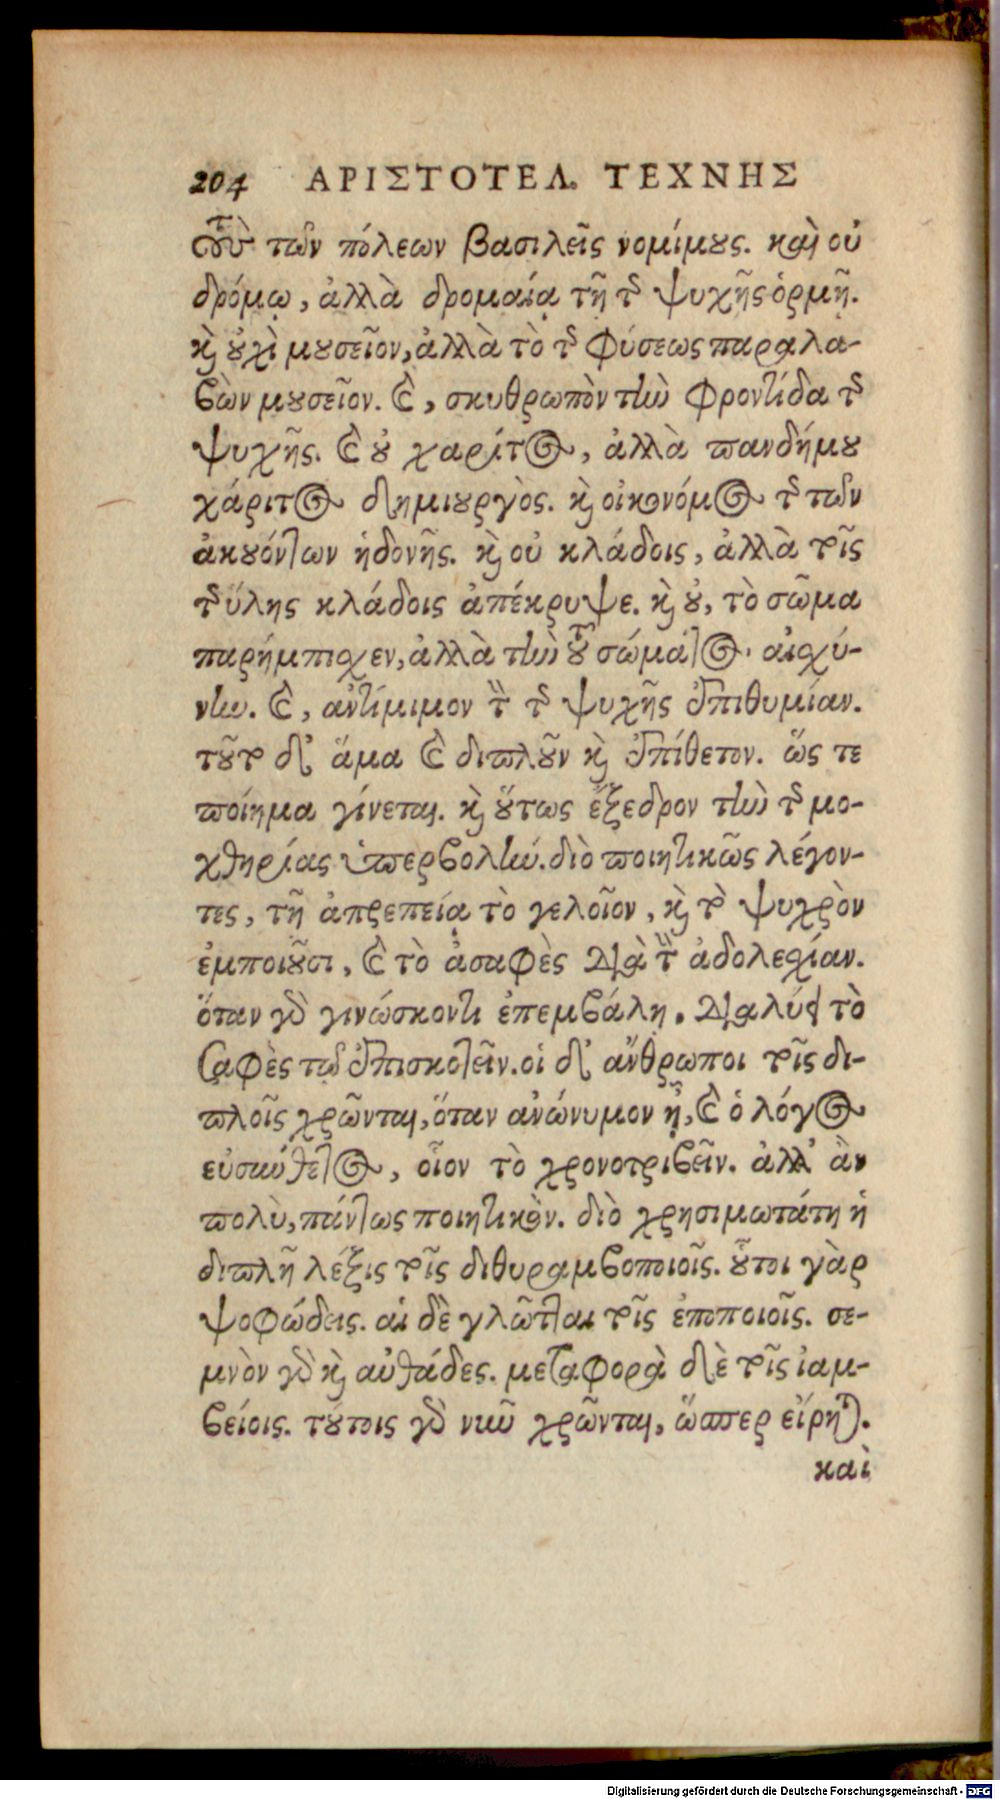 204 ΑΡΙΣΤΟΤΕΛ. ΤΕΧΝΗΣ
τοὺς τῶν πόλεων βασιλεῖς νομίμους. καὶ οὐ
δρόμῳ, ἀλλὰ δρομαίᾳ τῇ τῆς ψυχῆς ὁρμῇ.
καὶ οὐχὶ μουσεῖον, ἀλλὰ τὸ τῆς φύσεως παραλα-
βὼν μουσεῖον. καὶ, σκυθρωπὸν τὴν φροντίδα τῆς
ψυχῆς. καὶ οὐ χαρίτος, ἀλλὰ πανδήμου
χάριτος δημιουργὸς. καὶ οἰκονόμος τῆς τῶν
ἀκουόντων ἡδονῆς. καὶ οὐ κλάδοις, ἀλλὰ τοῖς
τῆς ὕλης κλάδοις ἀπέκρυψε. καὶ οὐ, τὸ σῶμα
παρήμπισχεν, ἀλλὰ τὴν τοῦ σώματος αἰσχύ-
νην. καὶ, ἀντίμιμον τὴν τῆς ψυχῆς ἐπιθυμίαν.
τοῦτο δ' ἅμα καὶ διπλοῦν καὶ ἐπίθετον. ὥς τε
ποίημα γίνεται. καὶ οὕτως ἔξεδρον τὴν τῆς μο-
χθηρίας ὑπερβολήν. διὸ ποιητικῶς λέγον-
τες, τῇ ἀπρεπείᾳ τὸ γελοῖον, καὶ τὸ ψυχρὸν
ἐμποιοῦσι, καὶ τὸ ἀσαφὲς διὰ τὴν ἀδολεσχίαν.
ὅταν γὰρ γινώσκοντι ἐπεμβάλη, διαλύει τὸ
σαφὲς τῷ ἐπισκοτεῖν. οἱ δ' ἄνθρωποι τοῖς δι-
πλοῖς χρῶνται, ὅταν ἀνώνυμον ᾖ, καὶ ὁ λόγος
εὐσύνθετος, οἷον τὸ χρονοτριβεῖν. ἀλλ' ἂν
πολὺ, πάντως ποιητικὸν. διὸ χρησιμωτάτη ἡ
διπλῆ λέξις τοῖς διθυραμβοποιοῖς. οὗτοι γὰρ
ψοφώδεις. αἱ δὲ γλῶτται τοῖς ἐποποιοῖς. σε-
μνὸν γὰρ καὶ αὐθάδες. μεταφορὰ δὲ τοῖς ἰαμ-
βείοις. τούτοις γὰρ νῦν χρῶνται, ὥσπερ εἴρηται.
καὶ
Digitalisierung gefördert durch die Deutsche Forschungsgemeinschaft - DFG